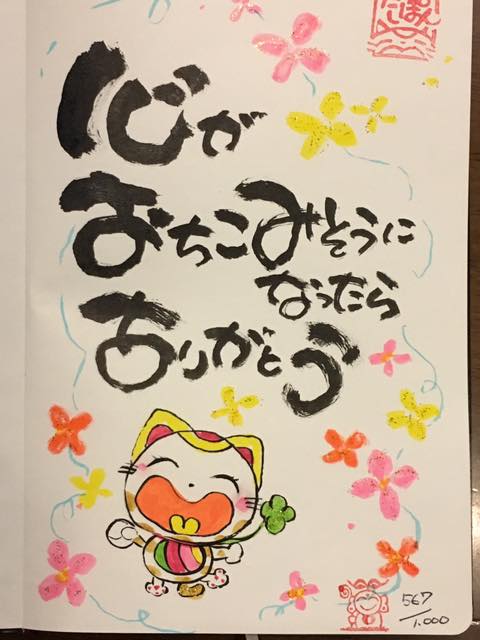 心が
おちこみそうに
なったら
ありがとう
567/1,000